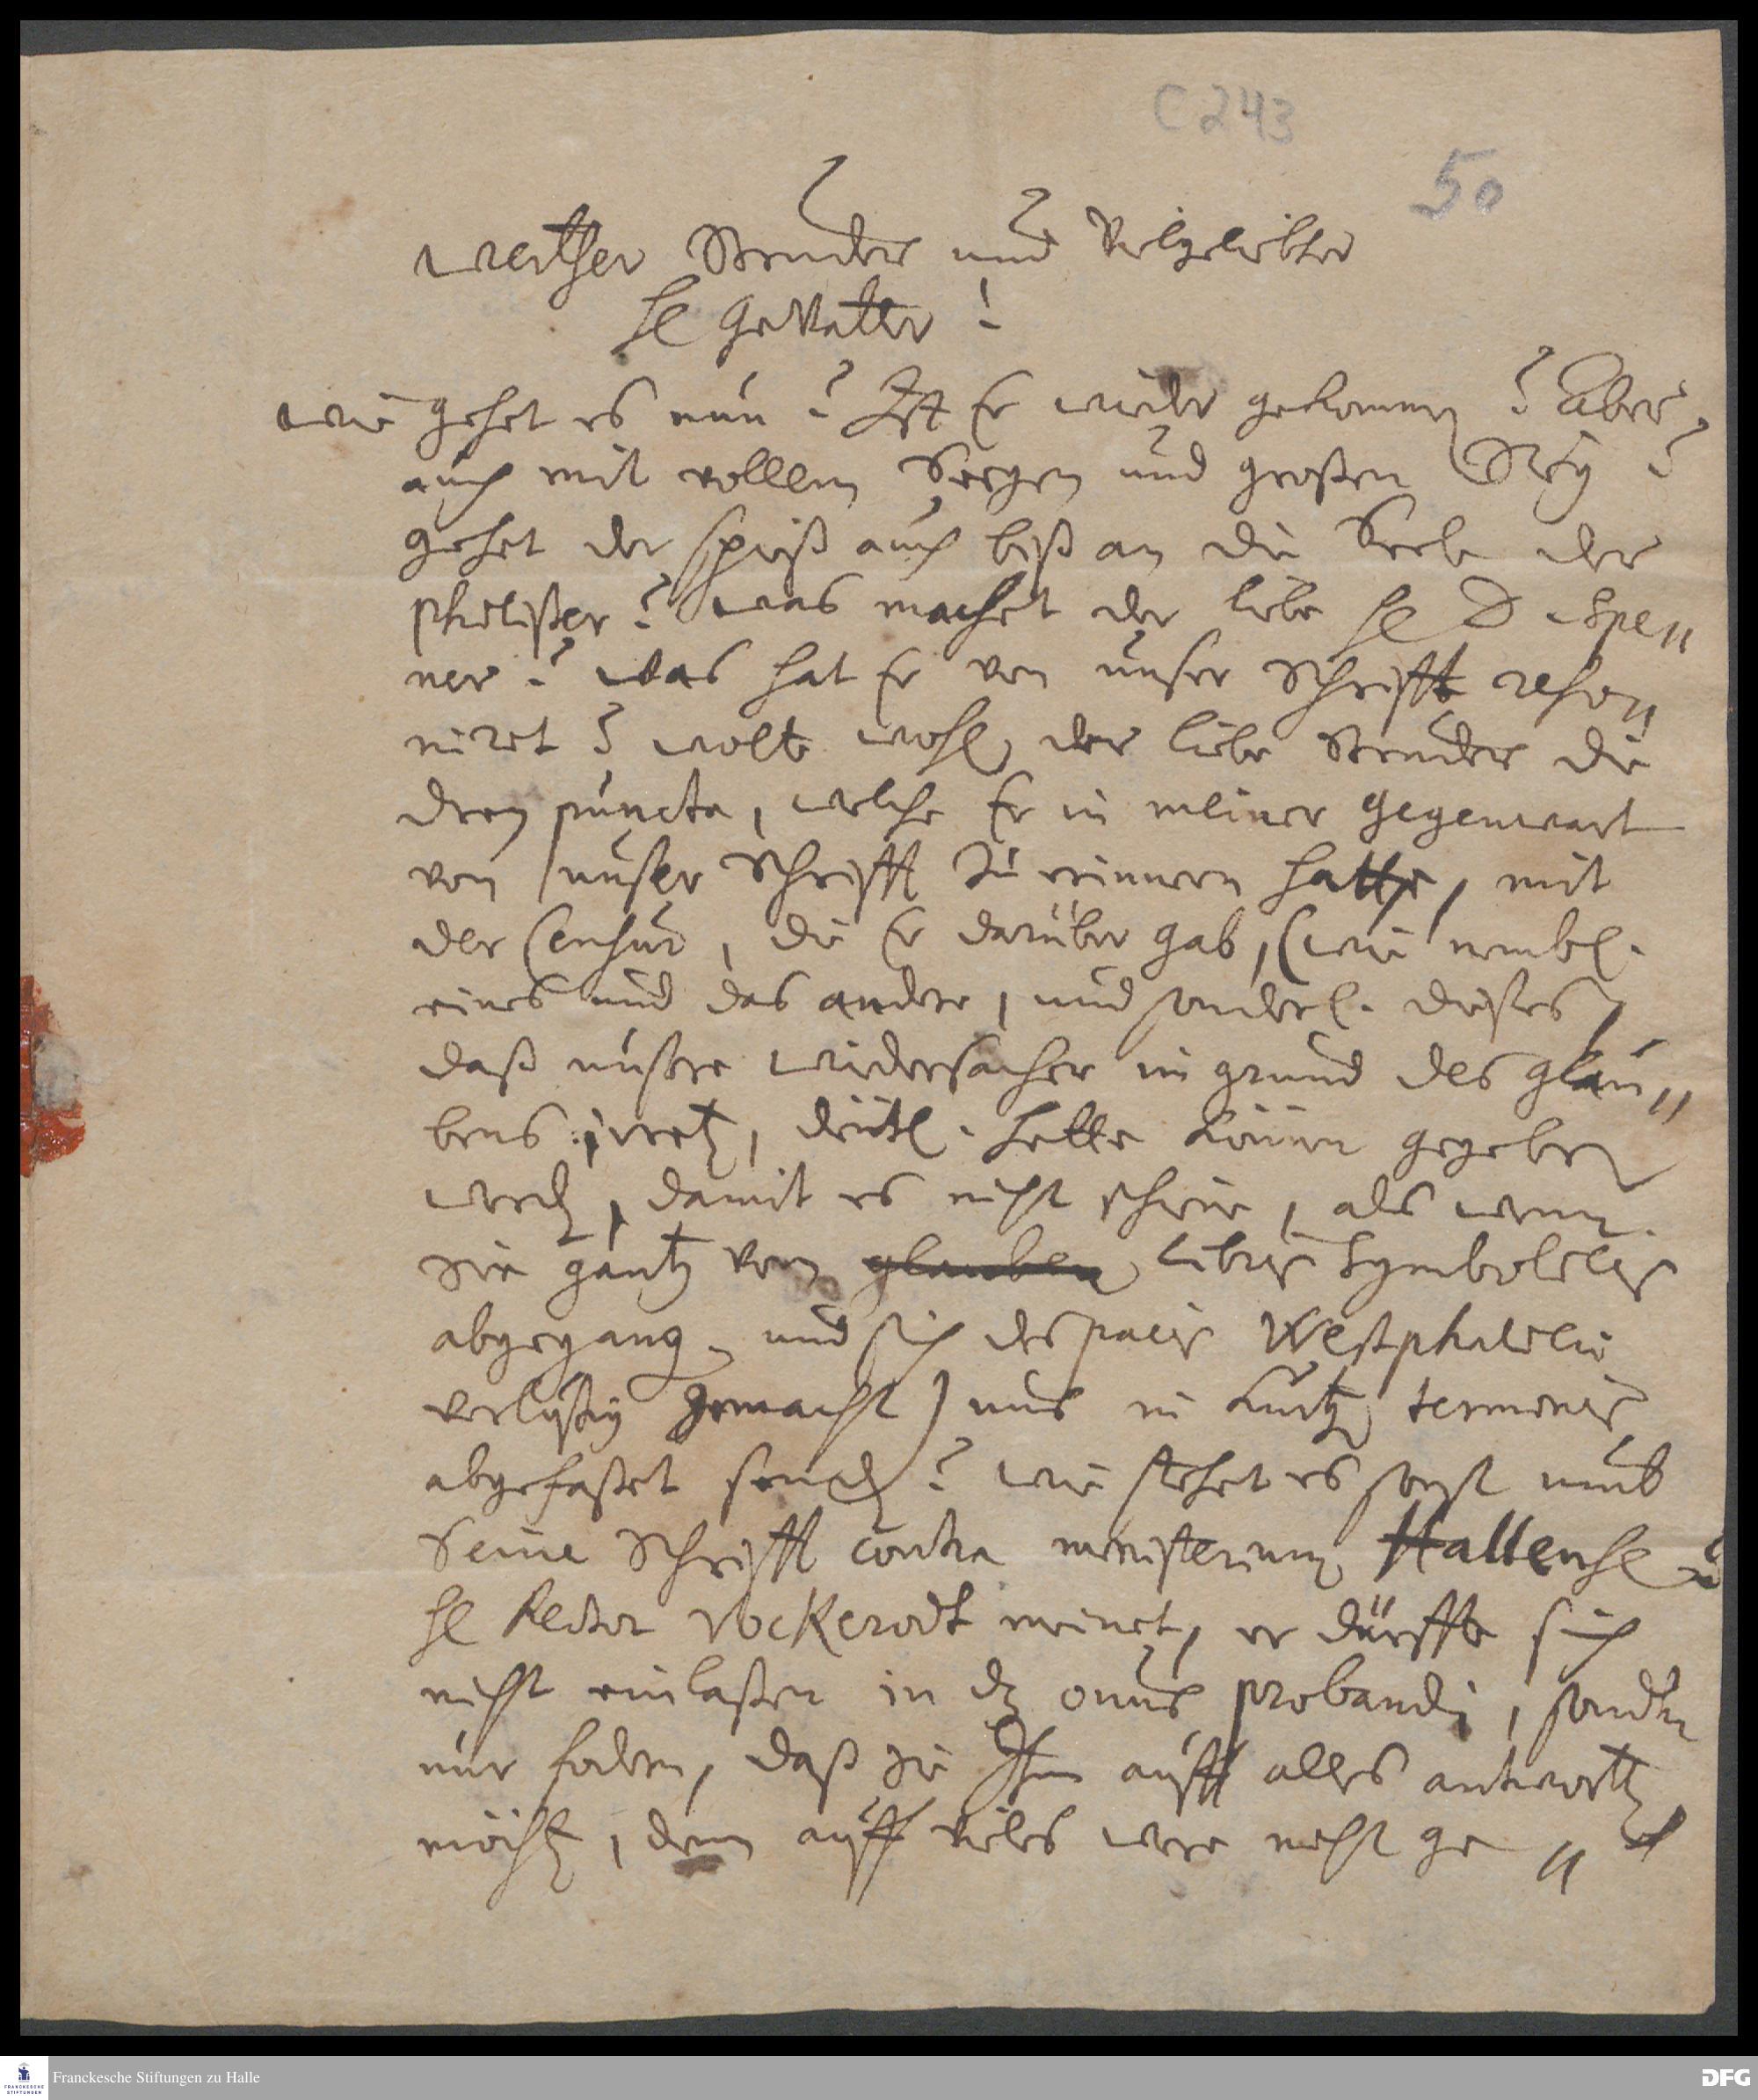 C 243
50
Werther Bruder und Vielgeliebter
HE Gevatter!
wie gehet es nun? Ist Er wieder gekommen? Aber
auch mit vollem Seegen und großen Sieg?
gehet der spieß auch biß an die Seele der
philister? was machet der liebe HE D Spe=
ner? was hat Er von unser Schrifft raiso=
niret? wolte wohl der liebe Bruder die
drey puncta, welche Er in meiner Gegenwart
von unser Schrifft zu erinnern hatte, mit
der Censur, die Er darüber gab, (wie nembl.
eines und das andere, und sonderl. dieses,
daß unsere widersacher im grund des glau=
bens irret, deutl. hette können gegeben
werd, damit es nicht schiene, als wenn
Sie gantz von glauben libris Symbolicis
abgegang und sich des pacis Westphalicae
verlustig gemacht) uns in kurtz terminis
abgefasset send? wie stehet es sonst umb
Seine Schrifft contra ministerium Hallense?
HE Rector Vockerodt meinet, er dürffte sich
nicht einlaßen in dz onus probandi, sondern
nur fodern, daß Sie Ihm auff alles antwortt
möcht, denn auff vieles were nicht ge=
Franckesche Stiftungen zu Halle
FRANCKESCHE STIFTUNGEN
DFG